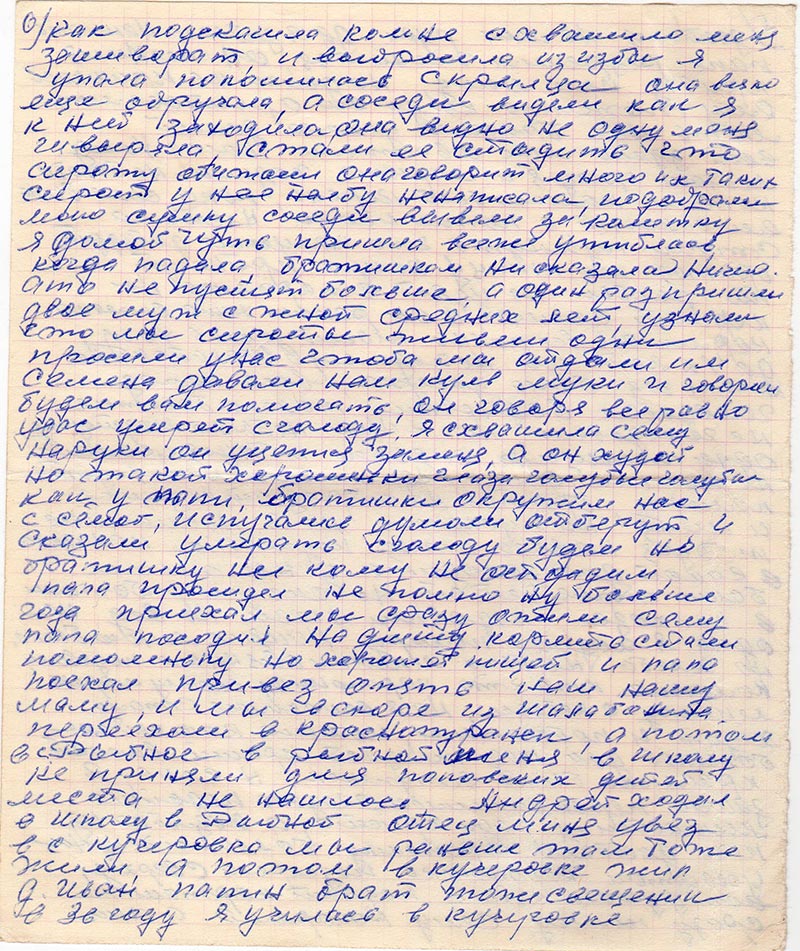 6) как подскачила комне схватила меня
зашиворат и выбросила из избы я
упала попатилась скрыльца она всяко
еще обручала, а соседи видели как я
к ней заходила она видно не одну меня
швыряла стали ее стыдить что
сироту обижаеш она говорит много их таких
сирот у нее хлебу ненаписала, подобрали
мою сумку соседи вывели за калитку
я домой чуть пришла всяже ушиблась
когда падала, братишкам ни сказала Ничего.
ато не пустят больше, а один раз пришли
двое муж с жной средних лет, узнали
что мы сироты живем одни
просили унас чтоба мы отдали им
Семена давали нам куль муки и говорили
будем вам помогать, он говоря все равно
увас умрет с голоду, я схватила сему
наруки он уцепился заменя, а он худой
но такой хорошинки глаза голубые голубые
как у папи, братишки окружили нас
с сёмой, испугались думали отберут и
сказали умирать с голоду будем но
братишку ни кому не отдадим,
папа просидел не помню ну больше
года приехал мы сразу ожили сему
папа посодил на диету кормить стали
помоленьку но хорошей пищей и папа
поехал привез опять нам нашу
маму, и мы вскоре из шалаболина
переехали в краснатуранск, а потом
в с. Рыбное в рыбной меня в школу
не приняли для поповских детей
места не нашлось Андрей ходил
в школу в Рыбной отец миня увез
в с кучеровка мы раньше там тоже
жили, а потом в кучеровке жил
д. Иван папин брат тожи священик
в 30 году я училась в кучеровке